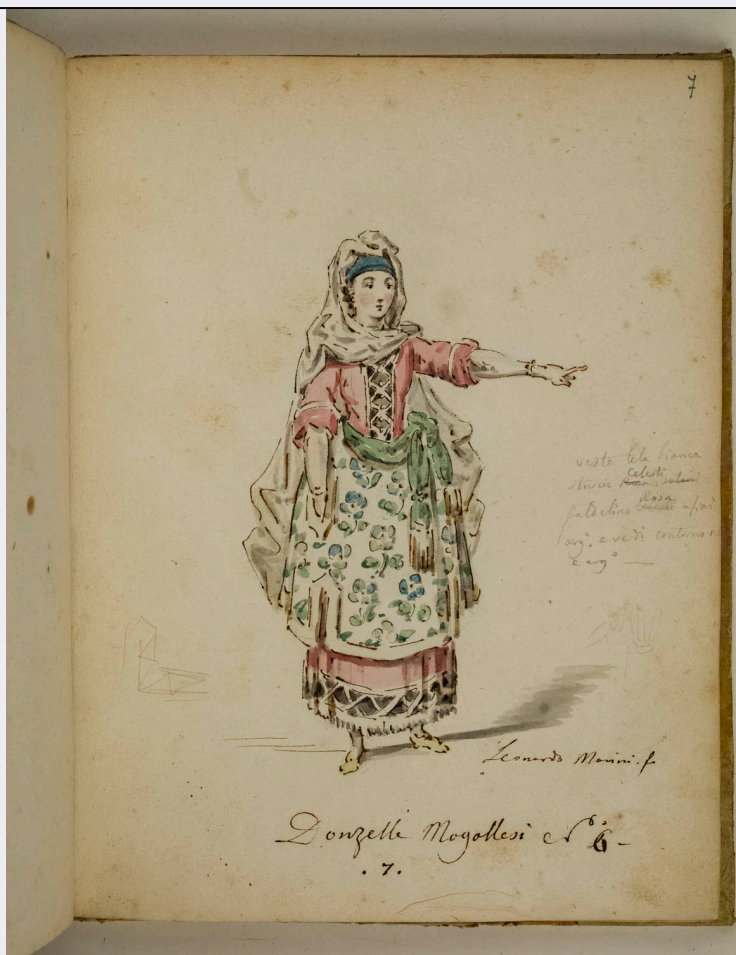 7
veste tela bianca
strisce celesti
faldelino Rosa a fiori
arg.º e verdi contorno
e arg.º
Leonardo Marini. f
Donzelle Mogollesi N.º 6-
. 7 .